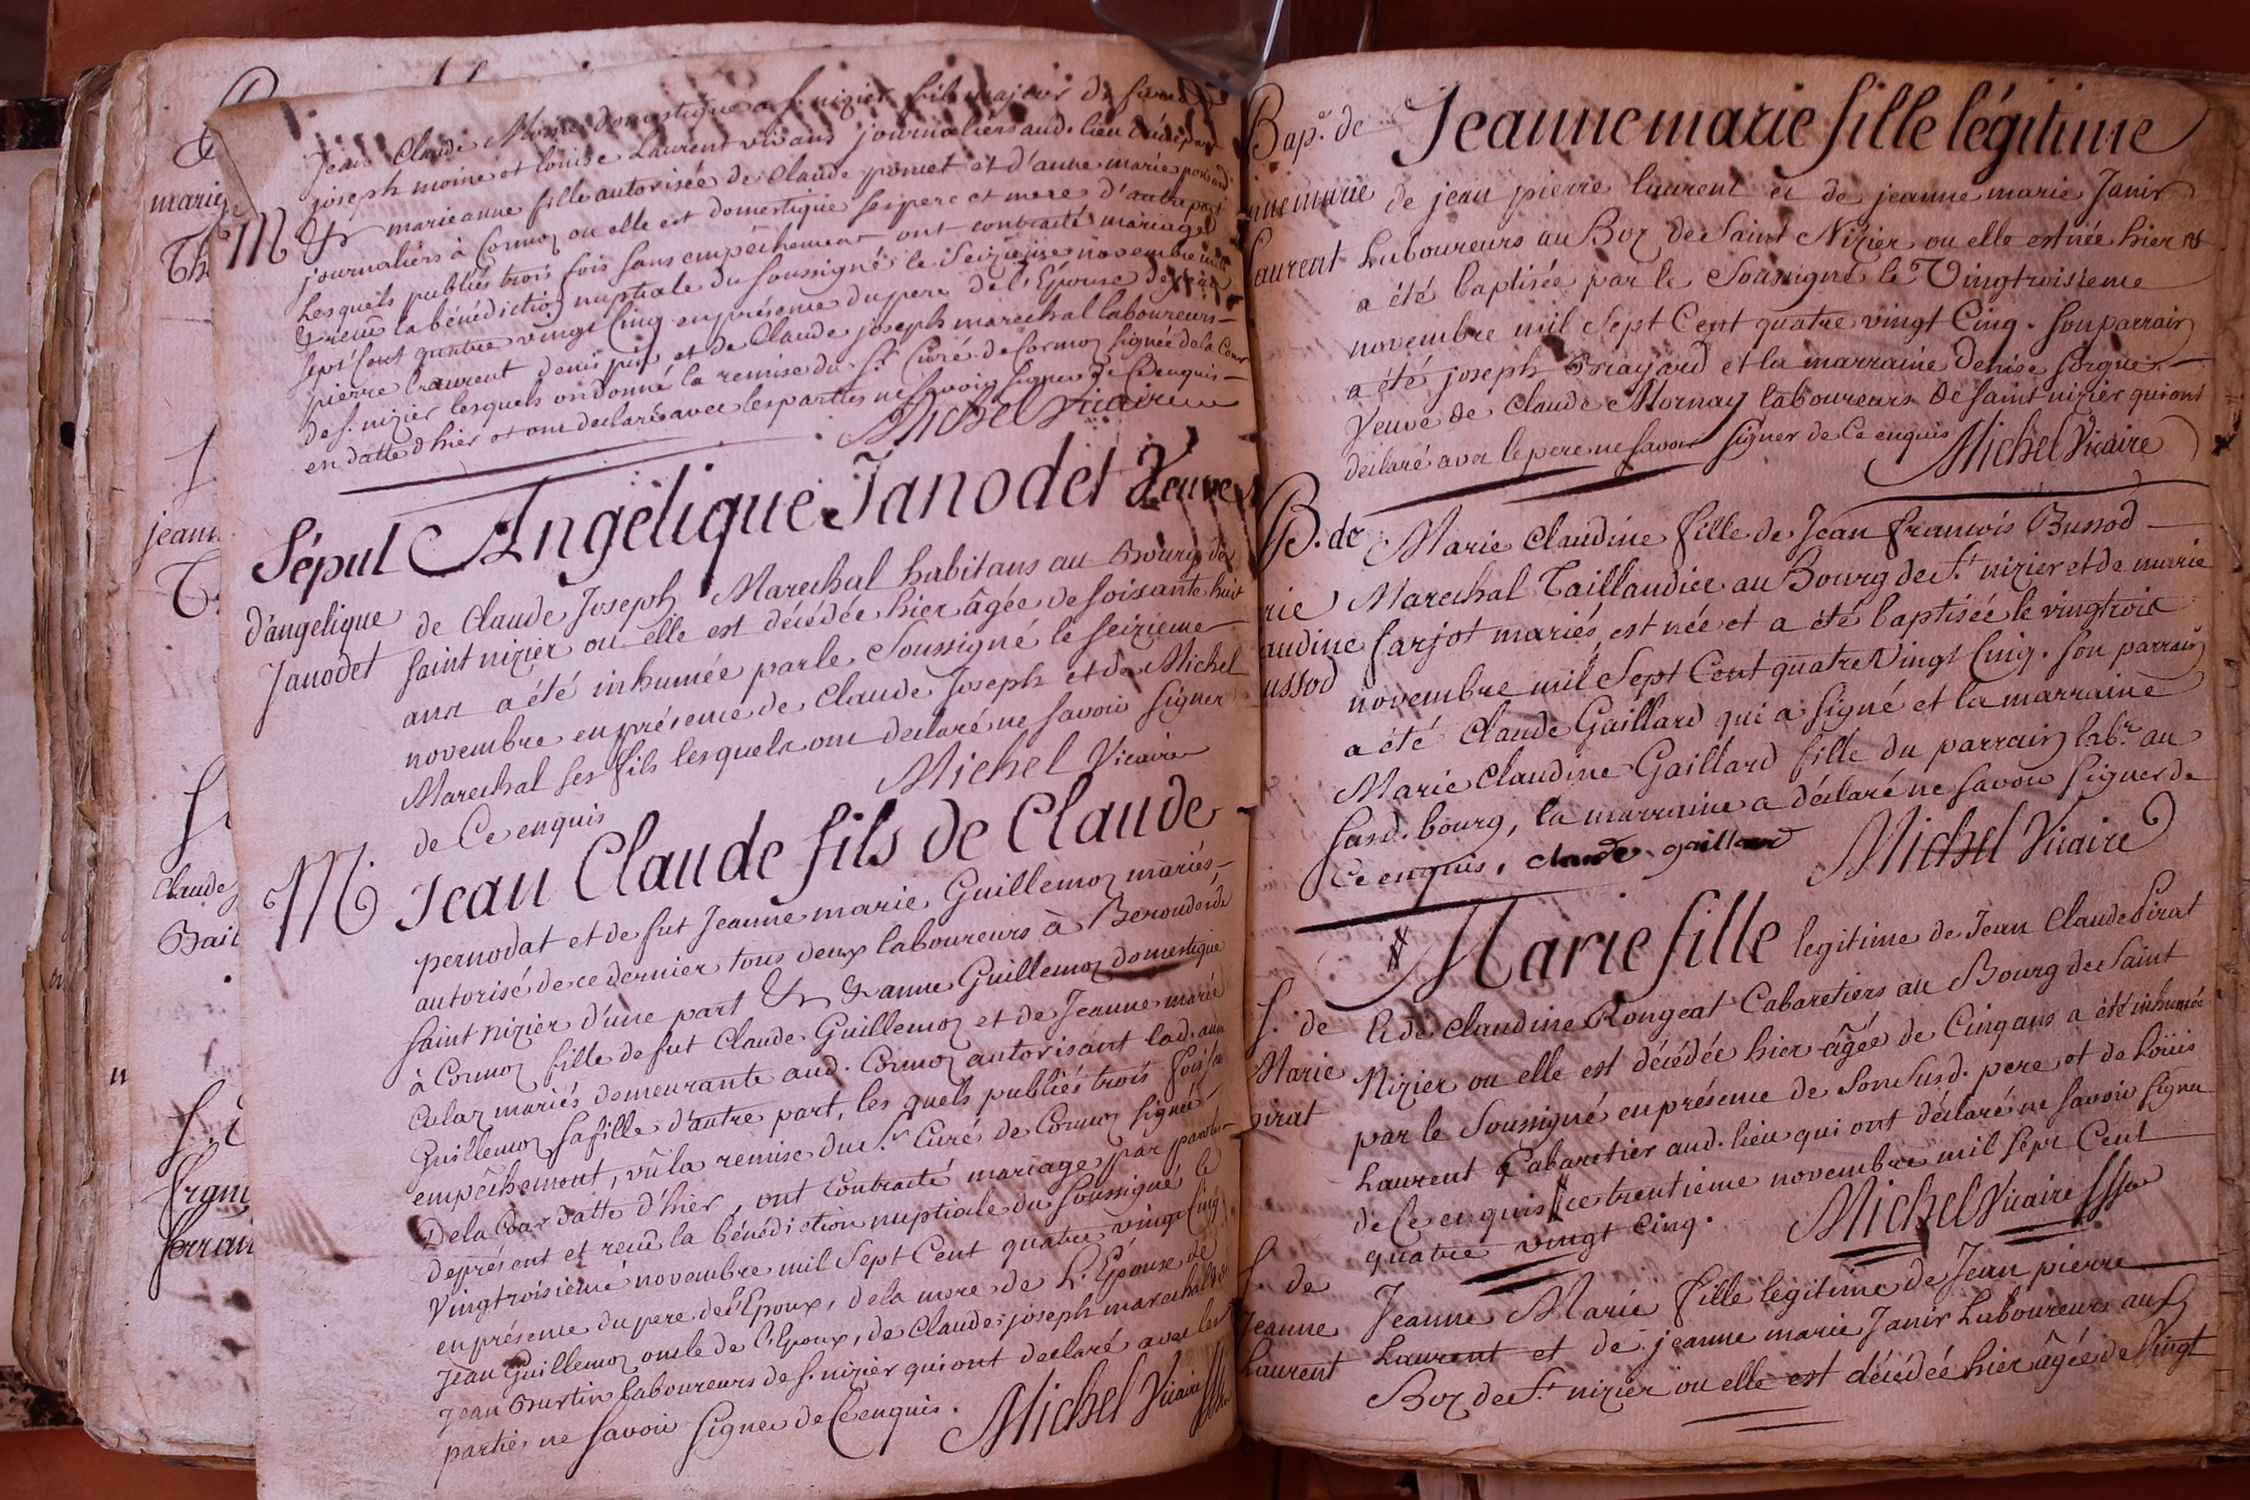 Jean Claude Moine domestique a S. nizier fils majeur de
joseph moine et louise Laurent vivans journaliers aud. lieu d'une part
M & marieanne fille autorisée de Claude poncet et d'anne marie
journaliers à Cormoz ou elle est domestique ses pere et mere d'autre part
Lesquels publiés trois fois sans empêchement ont contracté mariage
& reçu la bénédiction nuptiale du soussigné le Seizieme novembre mil
Sept Cent quatre vingt Cinq en présence du pere de l'Épouse de
pierre Laurent denis et de Claude joseph marechal laboureurs
de S. nizier lesquels ont donné la remise du Sr. Curé de Cormoz signée de la Cour
en datte d'hier et ont declaré avec les parties ne savoir signer de Ce enquis
Michel Vicaire
Sépul Angelique Janodet Veuve
d'angelique
Janodet
de Claude Joseph Marechal habitans au Bourg de
saint nizier ou elle est décédée hier âgée de soixante huit
ans a été inhumée par le Soussigné le seizieme
novembre en présence de Claude Joseph et de Michel
Marechal ses fils lesquels ont declaré ne savoir signer
de Ce enquis
Michel Vicaire
M. Jean Claude fils de Claude
pernodat et de fut Jeanne marie Guillemoz mariés
autorisé de ce dernier tous deux laboureurs à
saint nizier d'une part & & anne Guillemoz domestique
à Cormoz fille de fut Claude Guillemoz et de Jeanne marie
Colaz mariés demeurante aud. Cormoz autorisant lad. anne
Guillemoz sa fille d'autre part, les quels publiés trois fois sa
empêchement, vû la remise du Sr. Curé de Cormoz signée
De la Cour datte d'hier, ont contracté mariage par paroles
de présent et reçu la bénédiction nuptiale du Soussigné le
Vingtroisieme novembre mil Sept Cent quatre vingt Cinq
en présence du pere de l'Epoux, de la mere de L'Epouse de
Jean Guillemoz oncle de l'Epoux, de Claude joseph marechal & de
Jean Burtin laboureurs de S. nizier qui ont declaré avec les
parties ne savoir signer de Ce enquis.
Michel Vicaire
Bap. de Jeanne marie fille légitime
de jean pierre laurent et de jeanne marie Janir
Laurent Laboureurs au Boz de Saint Nizier ou elle est née hier &
a été baptisée par le Soussigné le Vingtroisieme
novembre mil Sept Cent quatre vingt Cinq. son parrain
a été joseph Brayard et la marraine Denise
Veuve de Claude Mornay laboureurs de saint nizier qui ont
déclaré avec le pere ne savoir signer de Ce enquis
Michel Vicaire
B. de Marie Claudine fille de Jean francois Bussod
Marechal Taillandier au Bourg de St. nizier et de marie
farjot mariés, est née et a été baptisée le vingtrois
novembre mil Sept Cent quatre Vingt Cinq. son parrain
a été Claude Gaillard qui a signé et la marraine
Marie Claudine Gaillard fille du parrain labr. au
susd. bourg, la marraine a déclaré ne savoir signer de
Ce enquis, claude gaillard
Michel Vicaire
Marie fille legitime de Jean Claude Pirat
S. de
Marie
pirat
& de Claudine Rongeat Cabaretiers au Bourg de Saint
Nizier ou elle est décédée hier âgée de Cinq ans a été inhumée
par le Soussigné en présence de son susd. pere et de Loüis
Laurent Cabaretier aud. lieu qui ont déclaré ne savoir signer
de Ce enquis ce trentieme novembre mil sept Cent
quatre vingt cinq.
Michel Vicaire
S. de
Jeanne
Laurent
Jeanne Marie fille legitime de Jean pierre
Laurent et de jeanne marie Janir Laboureurs au
Boz de St. nizier ou elle est décédée hier âgée de Vingt